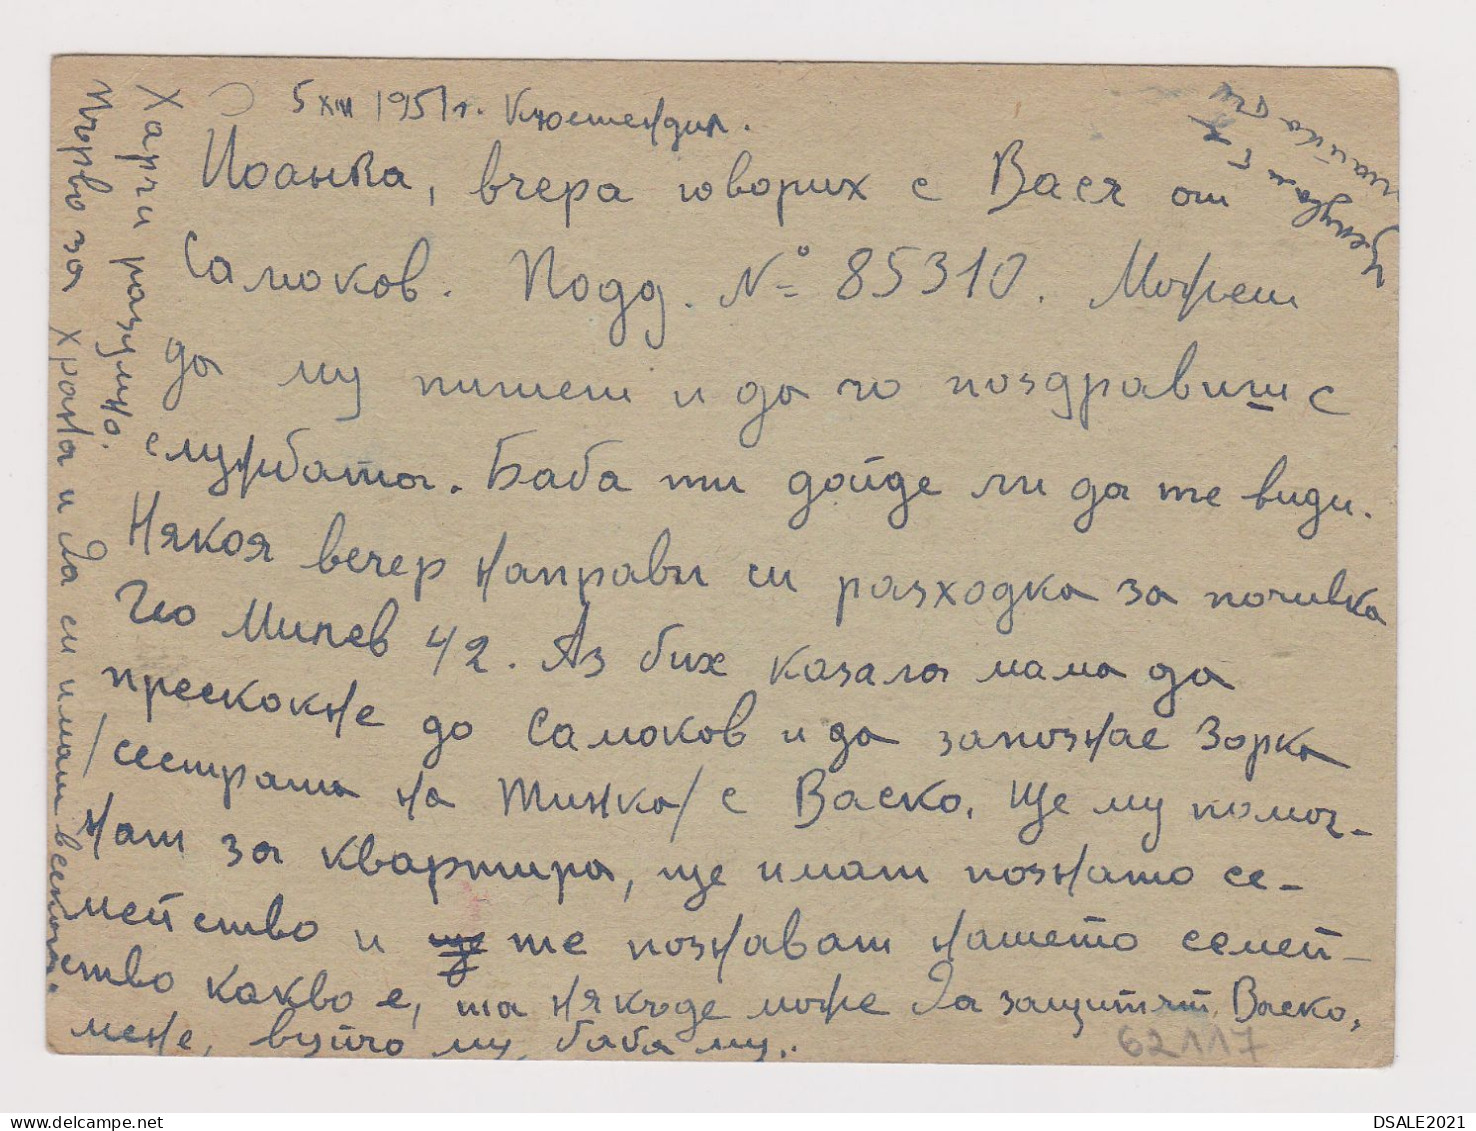 5 XII 1951 г. Кюстендил.
Иоанна, вчера говорих с Вася от
Самоков. Подд. № 85310. Можеш
да му пишеш и да го поздравиш с
службата. Баба ти дойде ли да те види.
Някоя вечер направи си разходка за почивка
Гео Милев 42. Аз бих казала мама да
прескокне до Самоков и да запознае Зорка
/сестрата на Тинка/ с Васко. Ще му помог-
нат за квартира, ще имат познато се-
мейство и те познават нашето семей-
ство какво е, та някъде може да защитят Васко,
мене, вуйчо му, баба му..
Харчи разумно.
Първо за храна и да си имаш
Целувам
майка ти
62117
DSALE2021